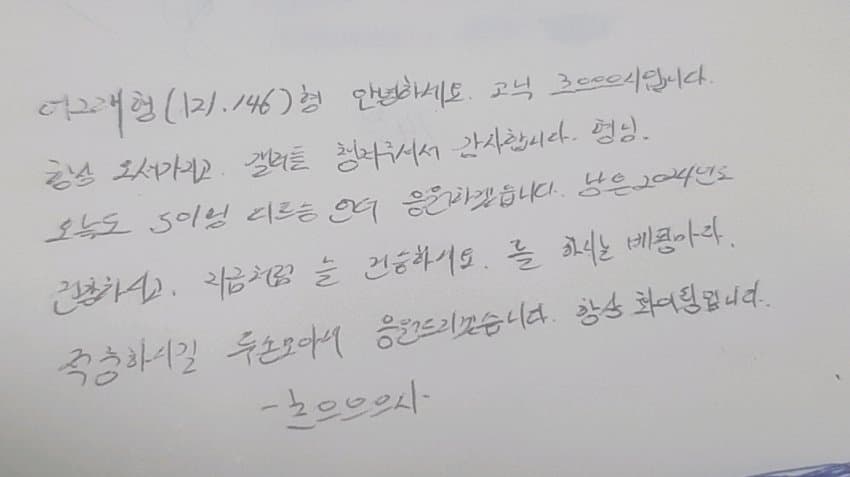 어그래형(121.146)형 안녕하세요. 고닉 3000시입니다.
항상 오셔가지고. 갤러들 챙겨주셔서 감사합니다. 형님.
오늘도 5이닝 언더 응원하겠습니다. 남은 2024년도
건창하시고. 지금처럼 늘 건승하세요. 늘 하시는 베팅마다.
적중하시길 두손모아서 응원드리겠습니다. 항상 화이팅입니다.